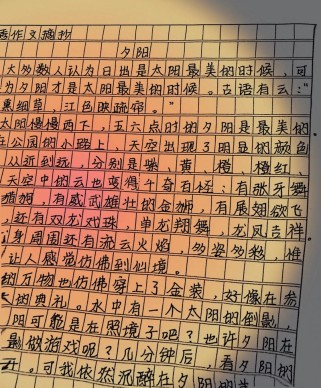 秀作文摘抄
夕阳
大多数人认为日出是太阳最美的时候，可
为夕阳才是太阳最美的时候。古语有云：“
熏细草，江色映疏帘。”
太阳慢慢西下，五六点时的夕阳是最美的
在公园的小路上，天空出现了明显的颜色
从近到远，分别是紫、黄、橙、橙红、
天空中的云也变得千奇百怪：有张牙舞
猎狗，有威武雄壮的金狮，有展翅欲飞
，还有双龙戏珠，单龙翔舞，龙凤吉祥
身周围还有流云火焰，多姿多彩，惟
让人感觉仿佛到仙境。
的万物也仿佛穿上了金装，好像在参
的典礼。水中有一个太阳的倒影，
阳可能是在照镜子吧？也许夕阳在
最欲游戏呢？几分钟后，看夕阳的
。可我依然沉醉在夕阳的